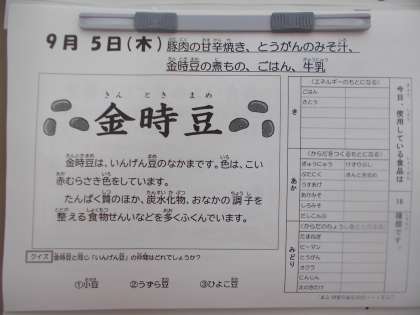 9月 5日(木) 豚肉の甘辛焼き、とうがんのみそ汁、
金時豆の煮もの、ごはん、牛乳
きん とき まめ
金時豆
金時豆は、いんげん豆のなかまです。色は、こい
赤むらさき色をしています。
たんぱく質のほか、炭水化物、おなかの調子を
整える食物せんいなどを多くふくんでいます。
クイズ 金時豆と同じ「いんげん豆」の仲間はどれでしょうか？
①小豆 ②うずら豆 ③ひよこ豆
今日、使用している食品は 18 種類です。
き
(エネルギーのもとになる)
ごはん
さとう
あか
(からだをつくるもとになる)
ぎゅうにゅう
ぶたにく
うすあげ
あかみそ
しろみそ
だしこんぶ
みどり
たまねぎ
ピーマン
とうがん
オクラ
にんじん
えのきたけ